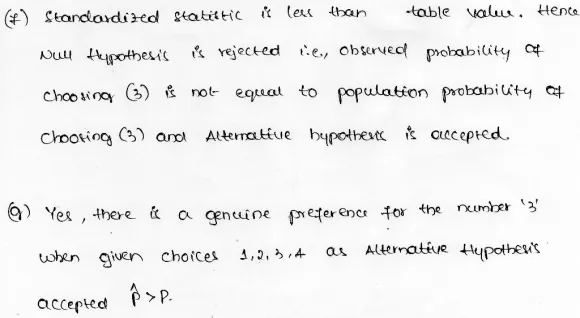 (f) Standardized statistic is less than table value. Hence
Null Hypothesis is rejected i.e., observed probability of
choosing (3) is not equal to population probability of
choosing (3) and Alternative hypothesis is accepted.
(g) Yes, there is a genuine preference for the number '3'
when given choices 1,2,3,4 as Alternative Hypothesis
accepted p̂ > p.